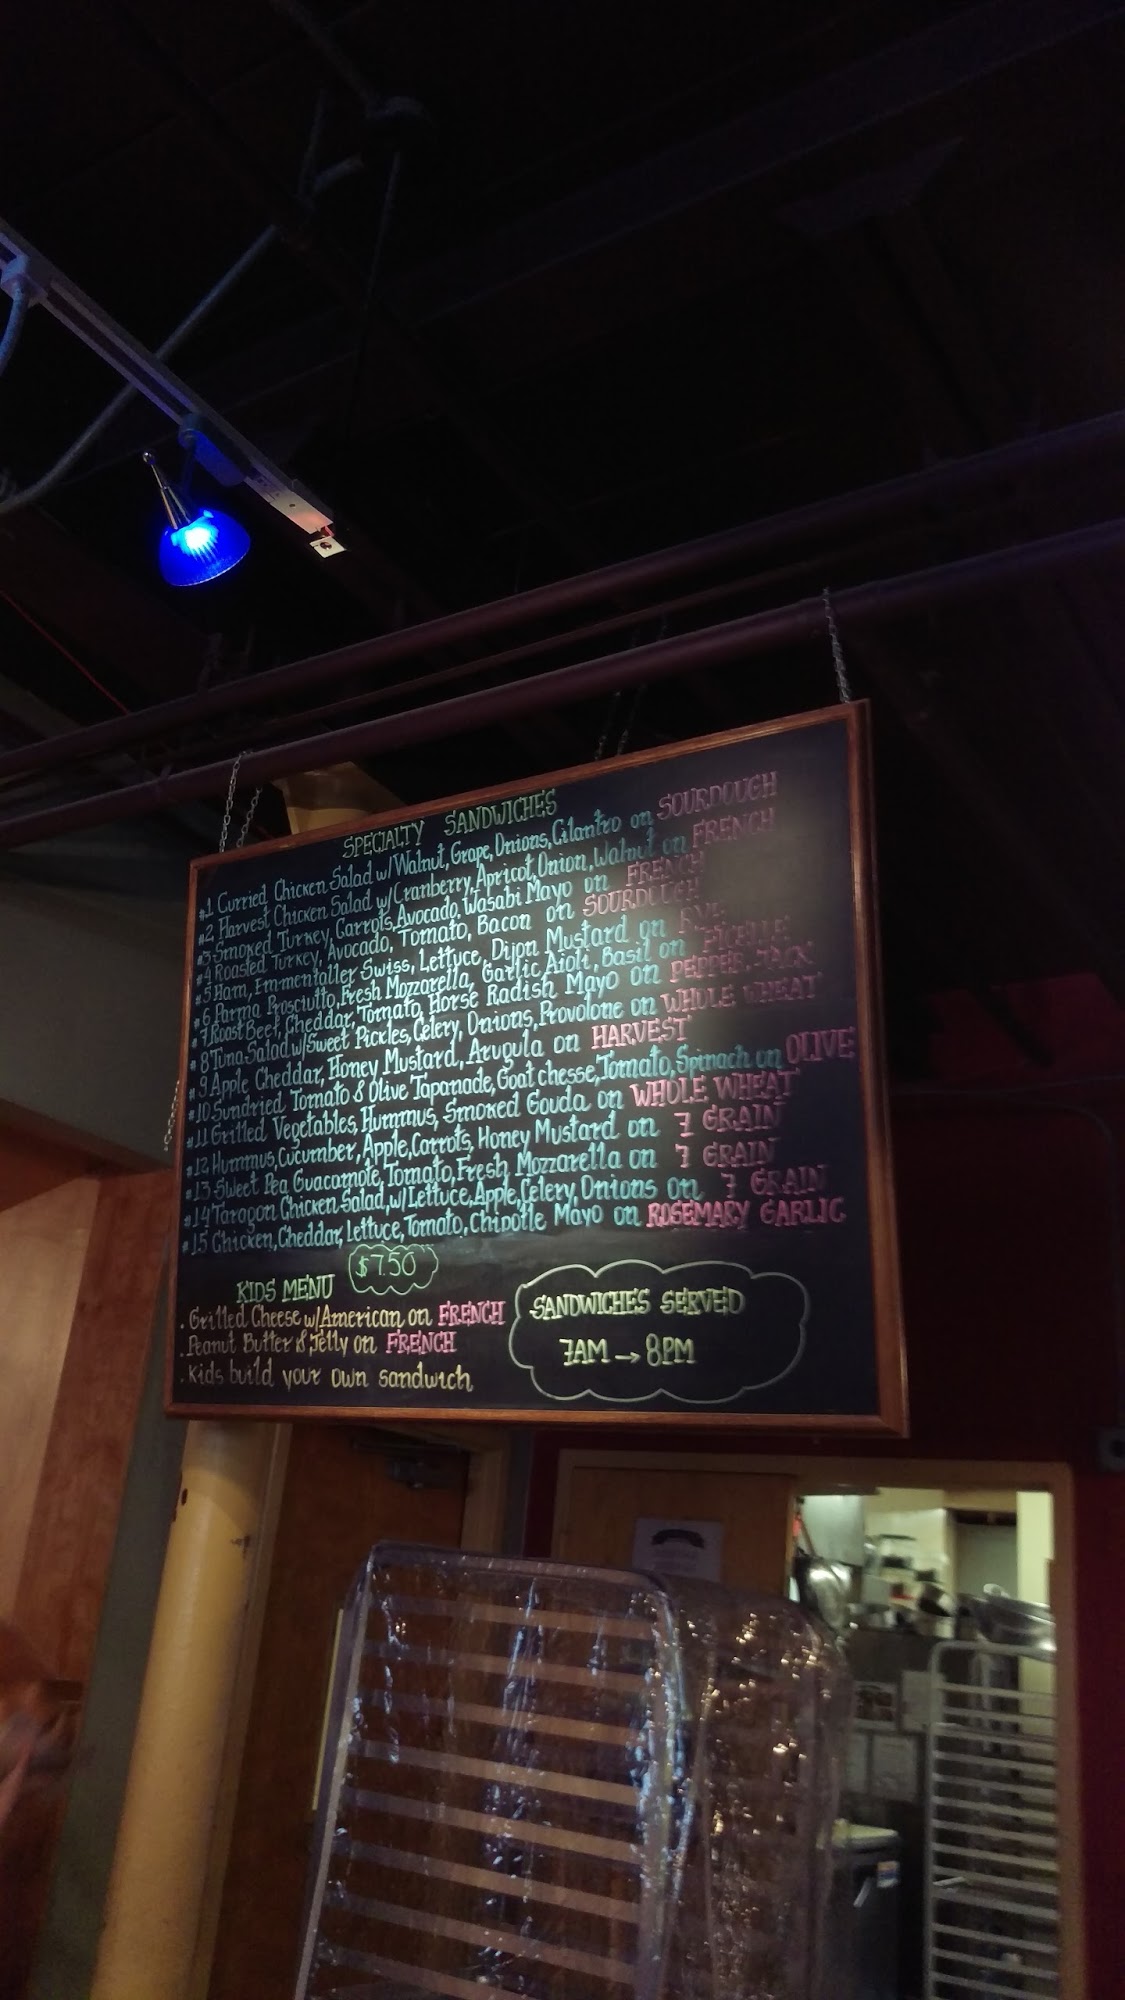 SPECIALTY SANDWICHES
#1 Curried Chicken Salad w/Walnut, Grape, Onions, Cilantro on SOURDOUGH
#2 Harvest Chicken Salad w/Cranberry, Apricot, Onion, Walnut on FRENCH
#3 Smoked Turkey, Carrots, Avocado, Wasabi Mayo on FRENCH
#4 Roasted Turkey, Avocado, Tomato, Bacon on SOURDOUGH
#5 Ham, Emmentaller Swiss, Lettuce, Dijon Mustard on RYE
#6 Parma Prosciutto, Fresh Mozzarella, Garlic Aioli, Basil on FICELLE
#7 Roast Beef, Cheddar, Tomato, Horse Radish Mayo on PEPPER JACK
#8 Tuna Salad w/Sweet Pickles, Celery, Onions, Provolone on WHOLE WHEAT
#9 Apple Cheddar, Honey Mustard, Arugula on HARVEST
#10 Sundried Tomato & Olive Tapanade, Goat chesse, Tomato, Spinach on OLIVE
#11 Grilled Vegetables, Hummus, Smoked Gouda on WHOLE WHEAT
#12 Hummus, Cucumber, Apple, Carrots, Honey Mustard on 7 GRAIN
#13 Sweet Pea Guacamole, Tomato, Fresh Mozzarella on 7 GRAIN
#14 Taragon Chicken Salad, w/Lettuce, Apple, Celery, Onions on 7 GRAIN
#15 Chicken, Cheddar, Lettuce, Tomato, Chipotle Mayo on ROSEMARY GARLIC
$7.50
KIDS MENU
. Grilled Cheese w/American on FRENCH
. Peanut Butter & Jelly on FRENCH
. Kids build your own sandwich
SANDWICHES SERVED
7AM → 8PM